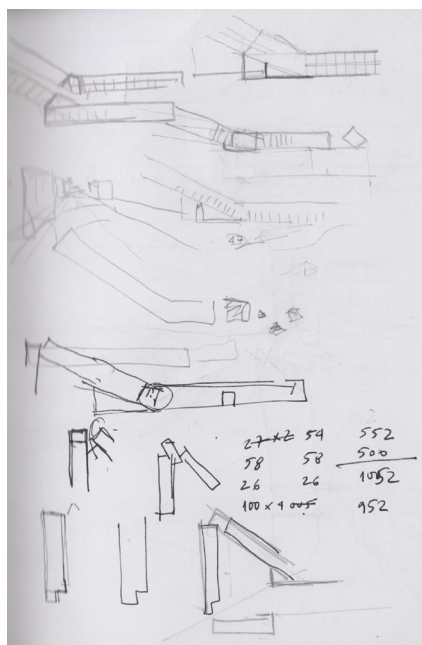 27 x 2 54 552
58 58 500
26 26 1052
100 x 4 952